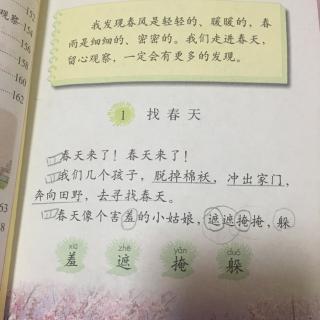 152
观察
154
156
160
162
163
我发现春风是轻轻的、暖暖的，春
雨是细细的、密密的。我们走进春天，
留心观察，一定会有更多的发现。
1 找春天
春天来了！春天来了！
我们几个孩子，脱掉棉袄，冲出家门，
奔向田野，去寻找春天。
春天像个害羞的小姑娘，遮遮掩掩，躲
xiū zhē yǎn duǒ
羞 遮 掩 躲